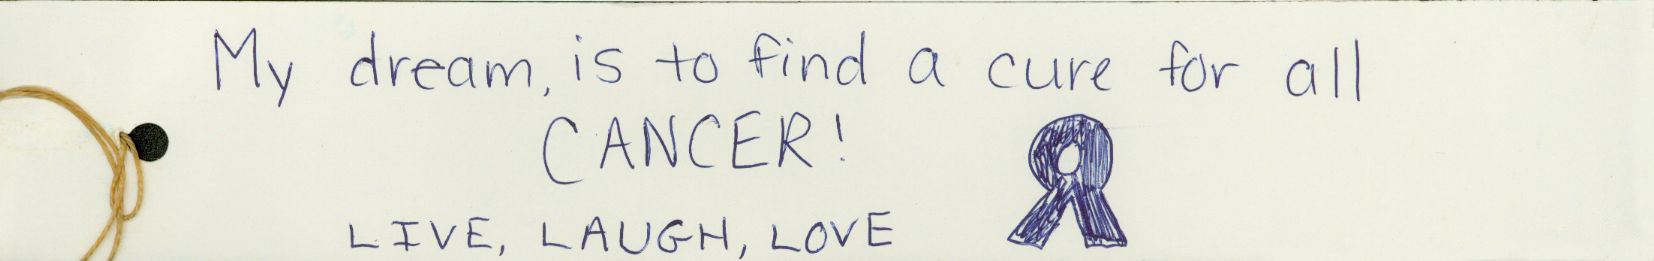 My dream, is to find a cure for all
CANCER!
LIVE, LAUGH, LOVE